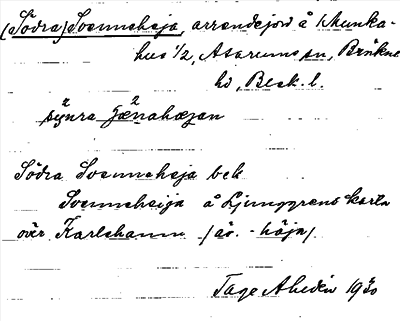 (Södra) Svenneheja, arrendejord å Munka-
hus 1/2, Asarums sn, Bräkne
hd, Blek. l.
sȳnra
Södra Svenneheja bek.
Svenneheija å Ljunggrens karta
över Karlshamn (äv. -höja).
Tage Ahldén 1930